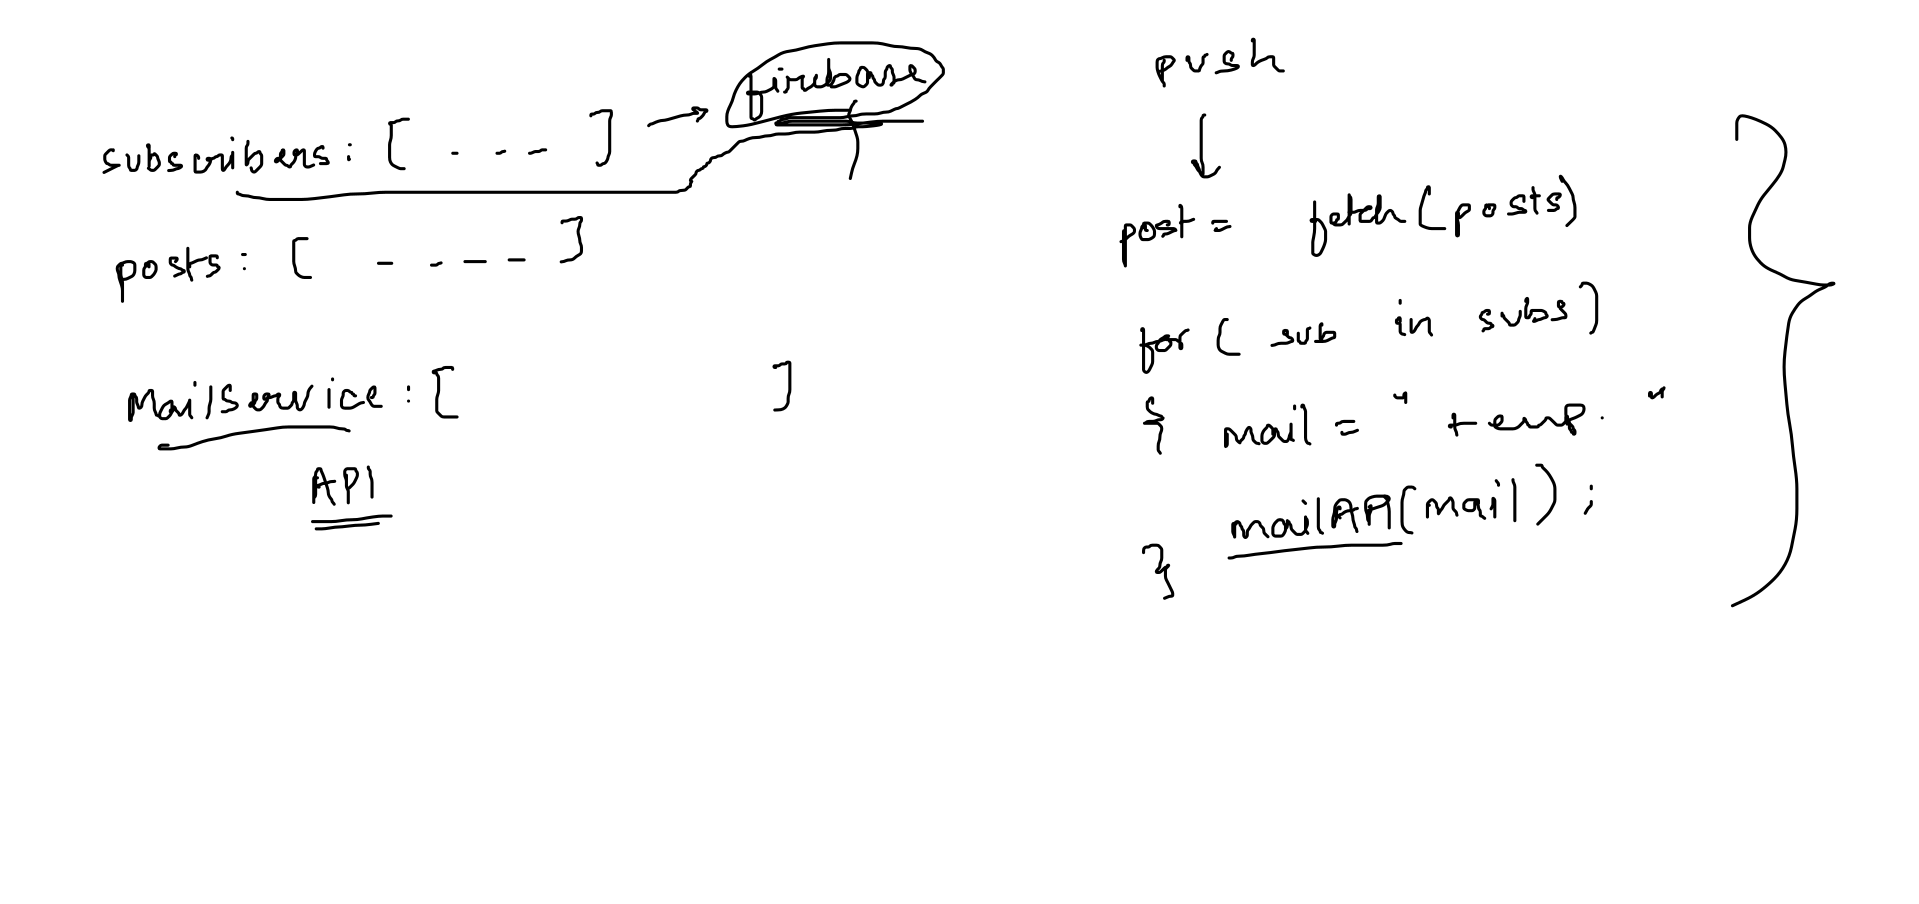 subscribers: [ - - - ] → firebase
posts: [ - - - - ]
MailService: [ ]
API
push
↓
post = fetch(posts)
for ( sub in subs )
{ mail = " temp. "
mailAPI(mail);
}